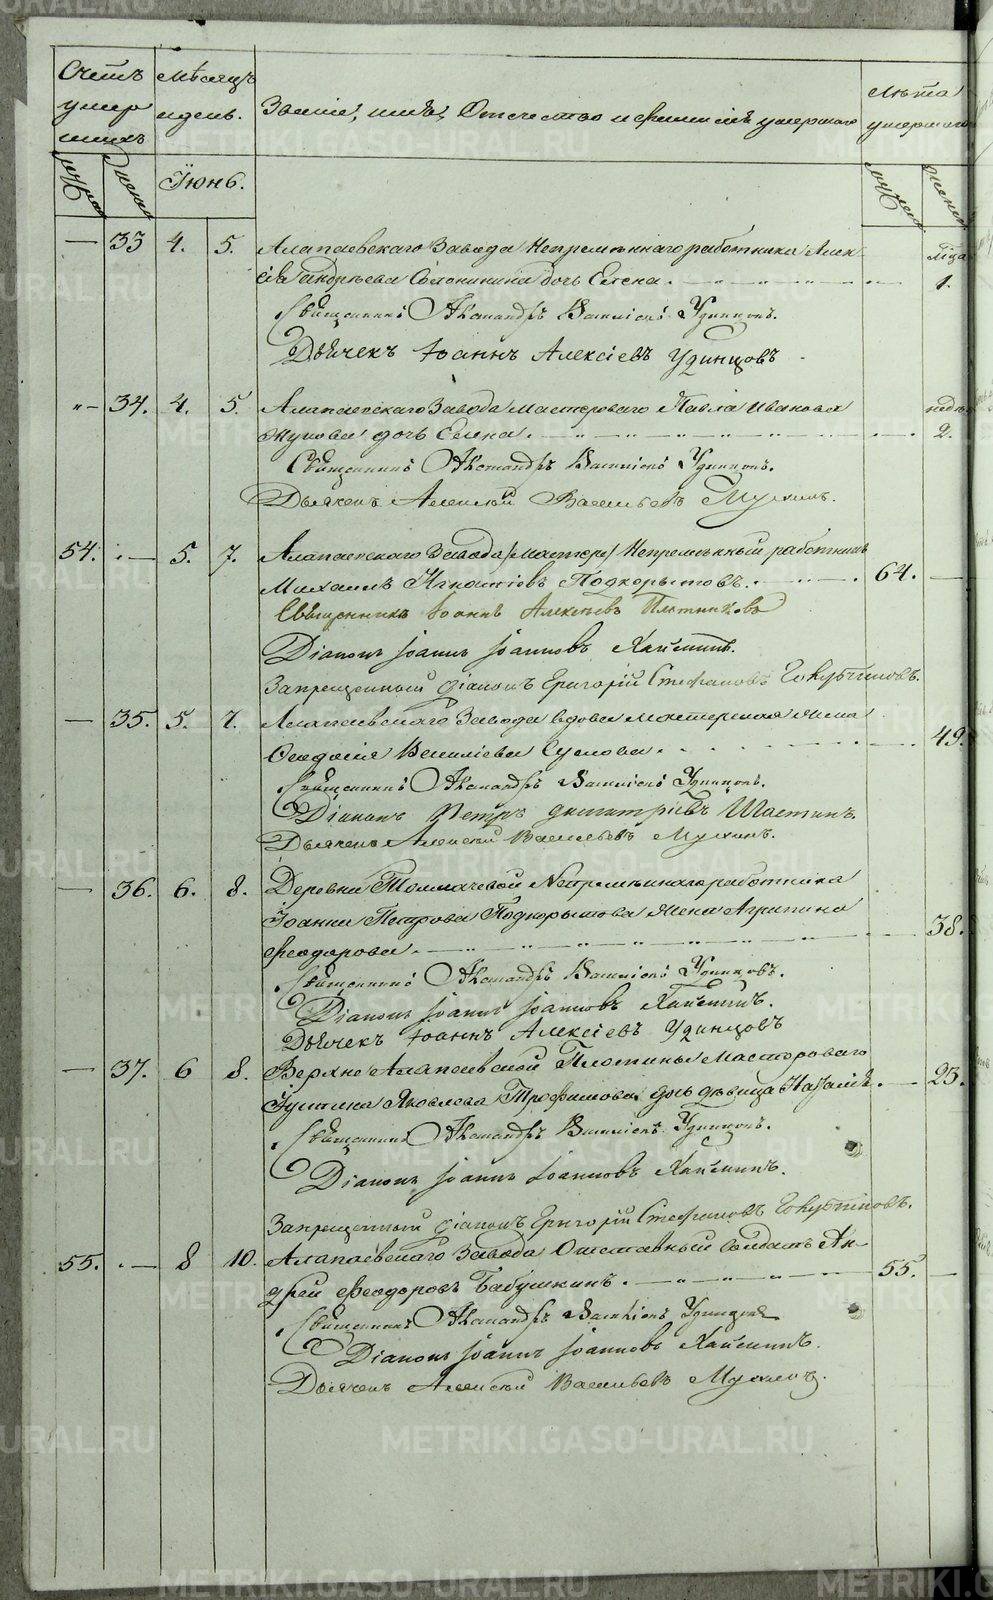 Счетъ умер шихъ
Мѣсяцъ и день.
Званіе, имя, Отечество и фамилія умершаго
Лѣта умершаго
Муж Женск
Іюнь.
Муже Женск
— 33 4. 5. Алапаевскаго Завода Непремѣннаго работника Алек
сѣя Андрѣева дочь Елена. Мѣся 1.
Священникъ Александръ Удинцовъ.
Дьячекъ Іоаннъ Алексіевъ Удинцовъ
"— 34. 4. 5. Алапаевскаго Завода мастероваго Павла Иванова недѣл
дочь Елена. 2.
Священникъ Александръ Удинцовъ.
Дьячекъ Алексѣй Васильевъ Мухинъ.
54. — 5. 7. Алапаевскаго Завода (Мастер) Непремѣнный работникъ
Михаилъ Игнатіевъ Подкорытовъ. 64. —
Священникъ Іоаннъ Алексѣевъ Плотниковъ
Діаконъ Іоаннъ Іоанновъ
Запрещенный діаконъ Григорій Стефановъ
— 35. 5. 7. Алапаевскаго Завода вдова мастерская жена
Феодосія Василіева Суслова. 49.
Священникъ Александръ Удинцовъ.
Діаконъ Петръ Димитріевъ
Дьячекъ Алексѣй Васильевъ Мухинъ.
— 36. 6. 8. Деревни Толмачевой Непремѣннаго работника
Іоанна Петрова Подкорытова жена Агрипина
Феодорова. 38.
Священникъ Александръ Удинцовъ.
Діаконъ Іоаннъ Іоанновъ
Дьячекъ Іоаннъ Алексіевъ Удинцовъ
— 37. 6 8. Верхне Алапаевской Плотины Мастероваго
Іустина Яковлева Трофимова дочь дѣвица Наталія. — 23.
Священникъ Александръ Удинцовъ.
Діаконъ Іоаннъ Іоанновъ
Запрещенный діаконъ Григорій Стефановъ
55. — 8 10. Алапаевскаго Завода Отставный Солдатъ Ан
дрей Феодоровъ Бабушкинъ. 55. —
Священникъ Александръ Удинцовъ
Діаконъ Іоаннъ Іоанновъ
Дьячекъ Алексѣй Васильевъ Мухинъ.
METRIKI.GASO-URAL.RU